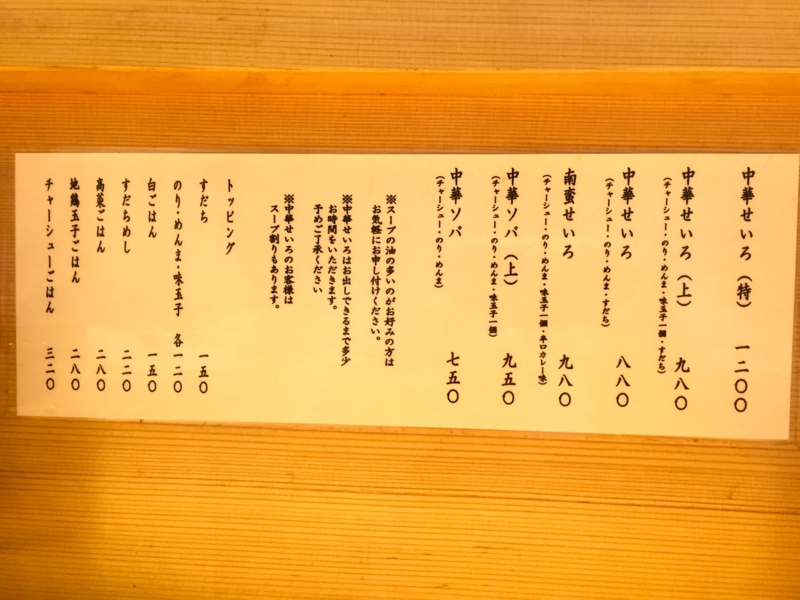 中華せいろ（特） 一二〇〇
中華せいろ（上） 九八〇
（チャーシュー・のり・めんま・味玉子一個・すだち）
中華せいろ 八八〇
（チャーシュー・のり・めんま・すだち）
南蛮せいろ 九八〇
（チャーシュー・のり・めんま・味玉子一個・辛口カレー味）
中華ソバ（上） 九五〇
（チャーシュー・のり・めんま・味玉子一個）
中華ソバ 七五〇
（チャーシュー・のり・めんま）
※スープの油の多いのがお好みの方は
お気軽にお申し付けください。
※中華せいろはお出しできるまで多少
お時間をいただきます。
予めご了承ください
※中華せいろのお客様は
スープ割りもあります。
トッピング
すだち 一五〇
のり・めんま・味玉子 各一二〇
白ごはん 一五〇
すだちめし 二二〇
高菜ごはん 二八〇
地鶏玉子ごはん 二八〇
チャーシューごはん 三二〇